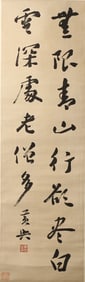 無限青山行欲盡白
雲深處老僧多
黃興